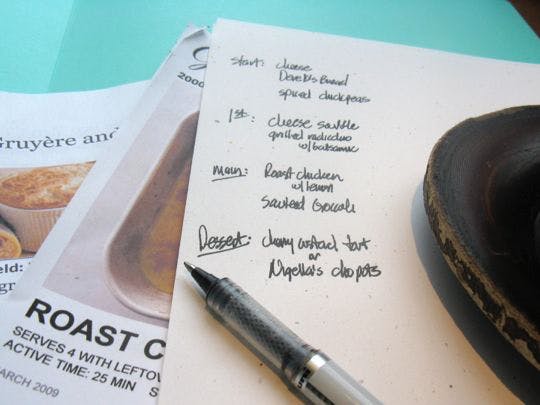 start: cheese
Derek's Bread
spiced chickpeas
1st: cheese souffle
grilled radicchio
w/balsamic
main: Roast chicken
w/lemon
Sauteed broccoli
Dessert: cherry custard tart
or
Nigella's choc pots
Gruyère and
2000
ROAST C
SERVES 4 WITH LEFTOV
ACTIVE TIME: 25 MIN S
MARCH 2009
eld:
gr